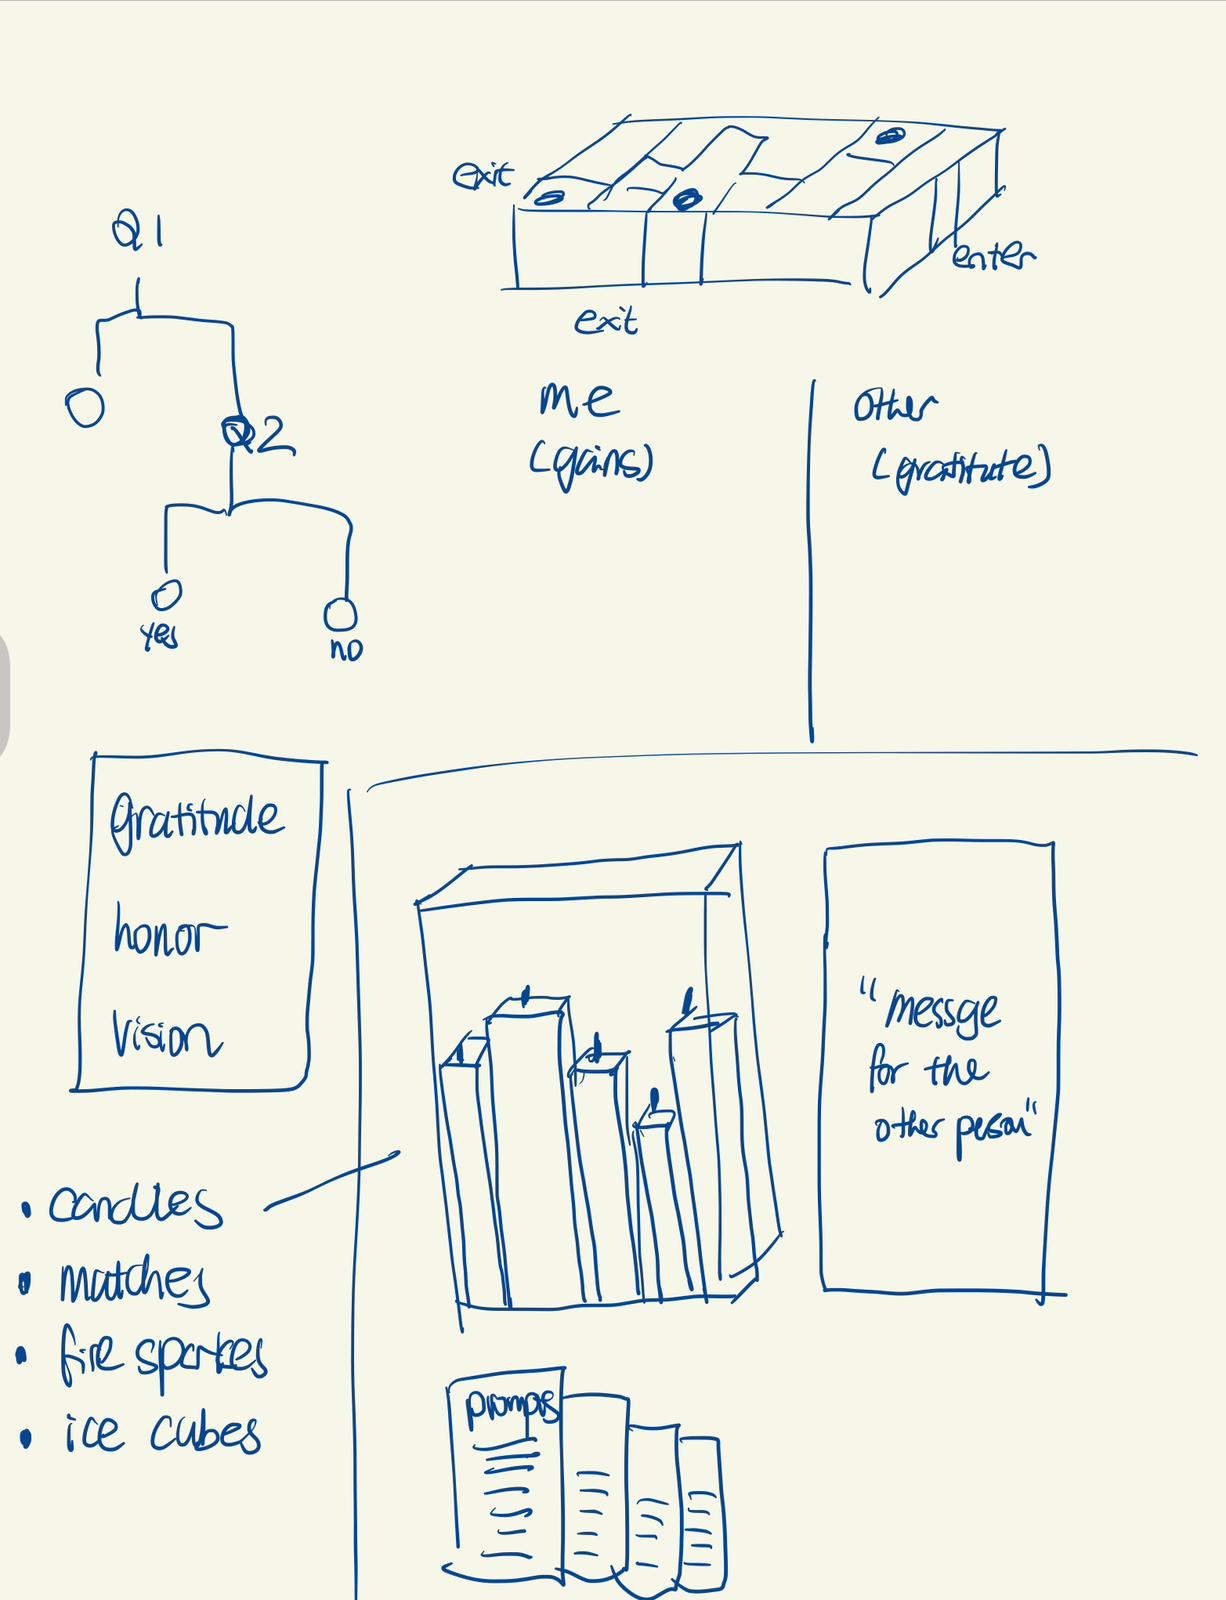 exit
Q1
enter
exit
me
(gains)
other
(gratitute)
Q2
yes
no
gratitude
honor
vision
"messge
for the
other person"
• candles
• matches
• fire sparkes
• ice cubes
prompts